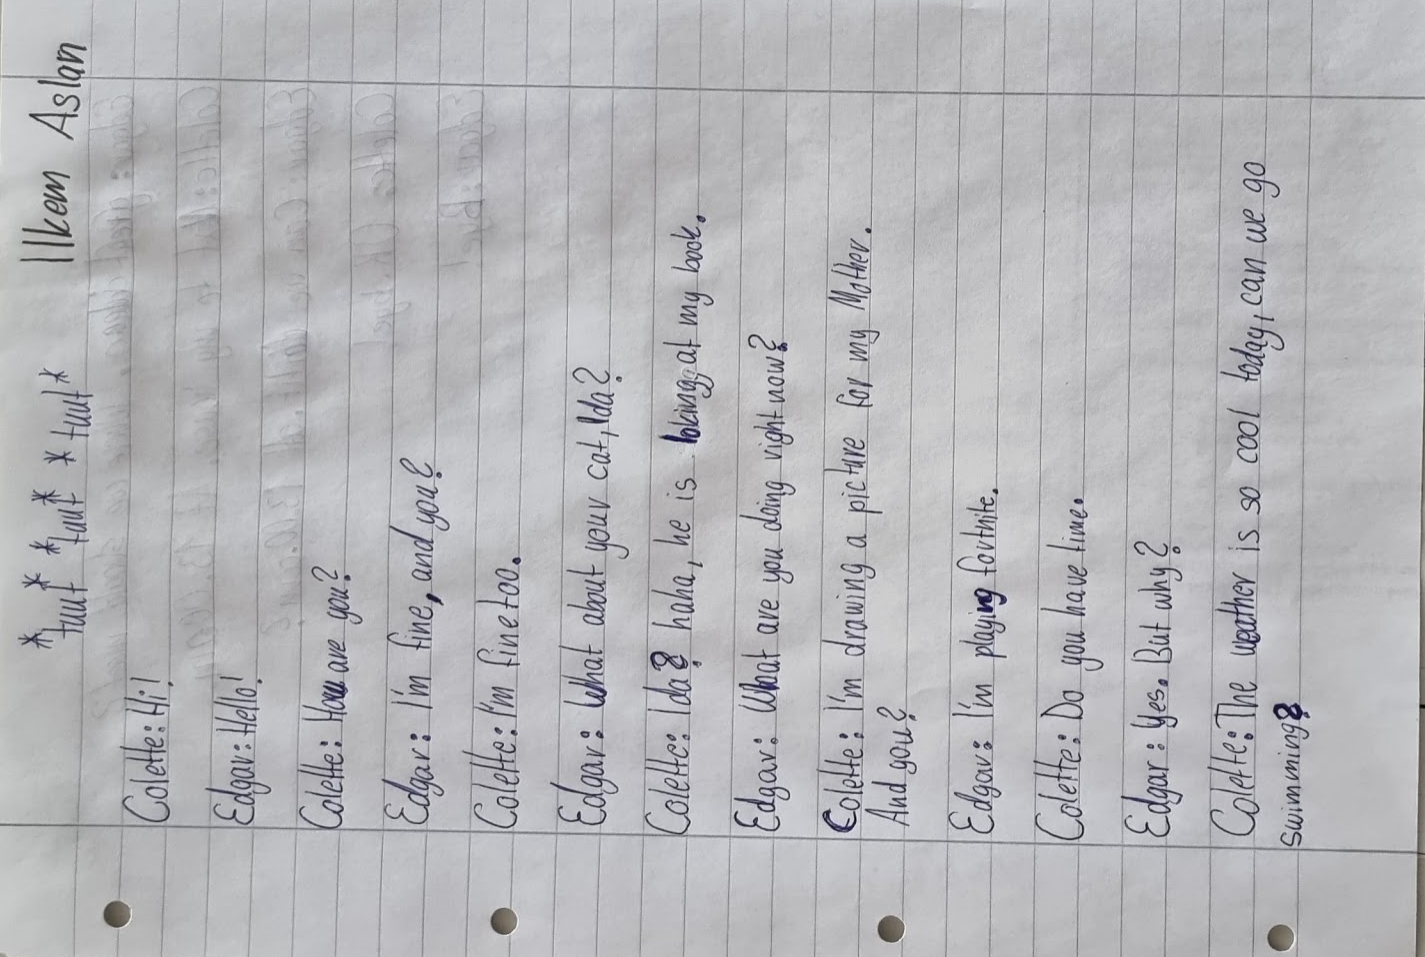 Ilkem Aslan
*tuut* *tuut* *tuut*
Colette: Hi!
Edgar: Hello!
Colette: How are you?
Edgar: I'm fine, and you?
Colette: I'm fine too.
Edgar: What about your cat, Ida?
Colette: Ida? haha, he is loking at my book.
Edgar: What are you doing right now?
Colette: I'm drawing a picture for my Mother.
And you?
Edgar: I'm playing fortnite.
Colette: Do you have time.
Edgar: Yes. But why?
Colette: The weather is so cool today, can we go
swimming?